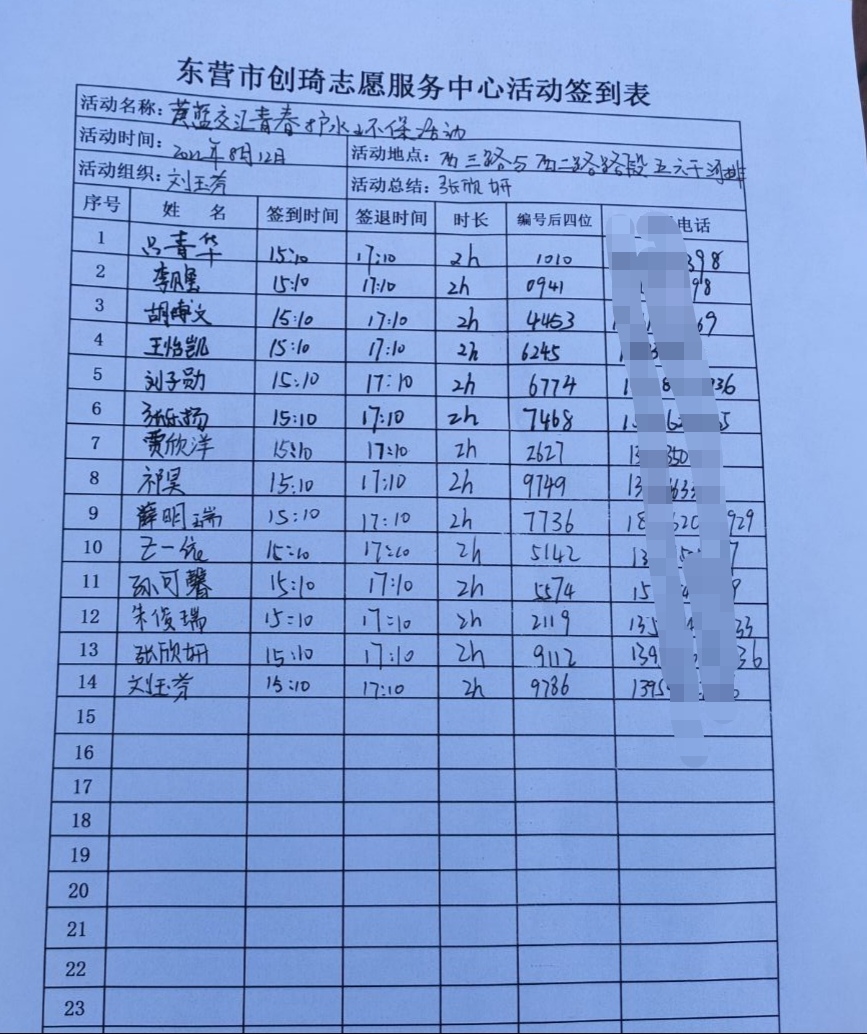 东营市创琦志愿服务中心活动签到表
活动名称：黄蓝交汇青春护水环保活动
活动时间：2022年8月12日 活动地点：西三路与西二路路段 五六干河排
活动组织：刘玉芳 活动总结：张欣妍
序号 姓 名 签到时间 签退时间 时长 编号后四位 电话
1 吕青华 15:10 17:10 2h 1010 398
2 李 15:10 17:10 2h 0941 98
3 胡博文 15:10 17:10 2h 4453 69
4 王怡凯 15:10 17:10 2h 6245
5 刘子勋 15:10 17:10 2h 6774 1 8 936
6 张乐扬 15:10 17:10 2h 7468 15 62 5
7 贾欣洋 15:10 17:10 2h 2627 13 350
8 祁昊 15:10 17:10 2h 9749 13 633
9 薛明瑞 15:10 17:10 2h 7736 18 620 929
10 一依 15:10 17:10 2h 5142 13 5 7
11 孙可馨 15:10 17:10 2h 5574 15 9
12 朱俊瑞 15:10 17:10 2h 2119 135 33
13 张欣妍 15:10 17:10 2h 9112 139 36
14 刘玉芳 15:10 17:10 2h 9786 1395
15
16
17
18
19
20
21
22
23